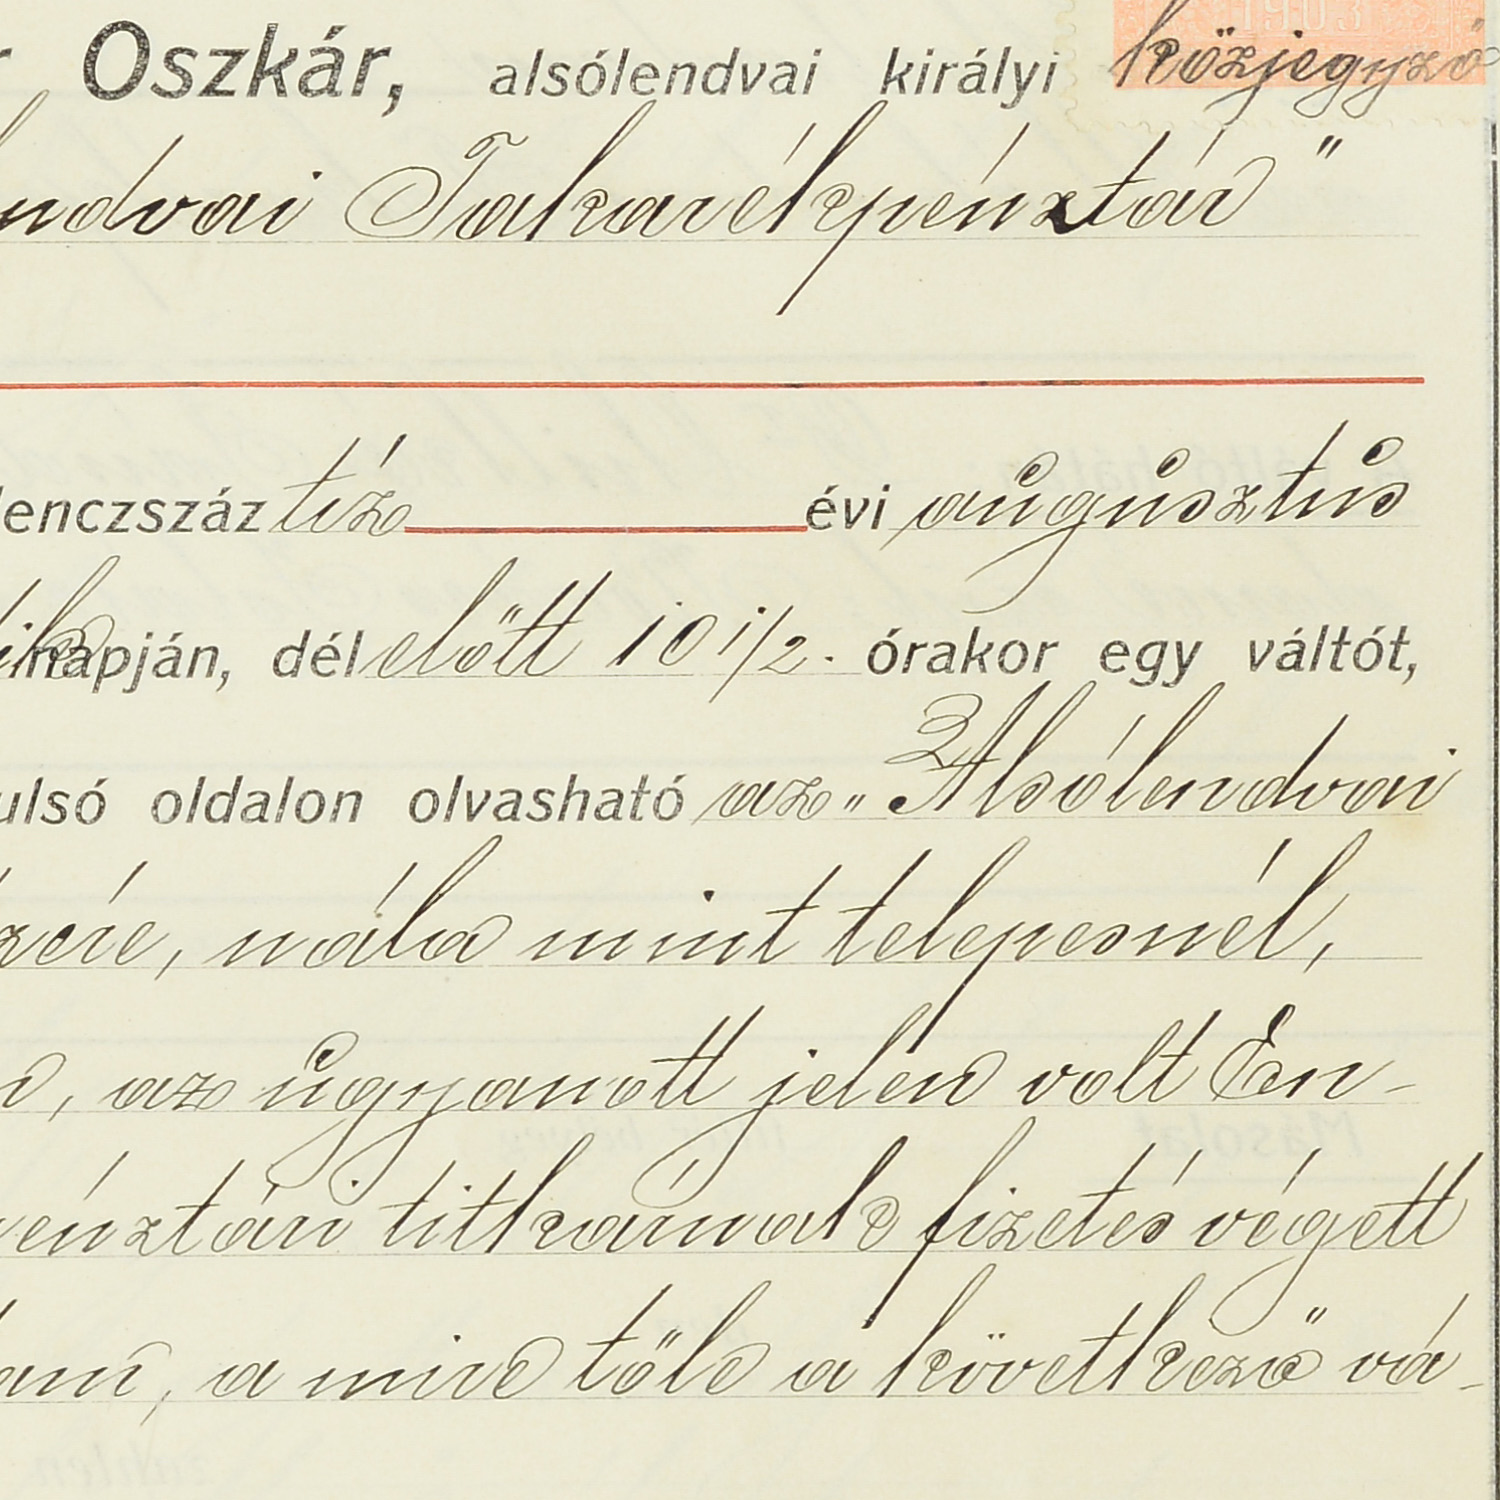 Oszkár, alsólendvai királyi közjegyző
1903
ndvai Takarékpénztár"
lenczszáz tíz évi augusztus
napján, dél előtt 10 1/2. órakor egy váltót,
ulsó oldalon olvasható az „Alsólendvai
nála mint telepesnél,
az ugyanott jelen volt En-
énztári titkárnak fizetés végett
a mire tőle a következő vá-
Másolat